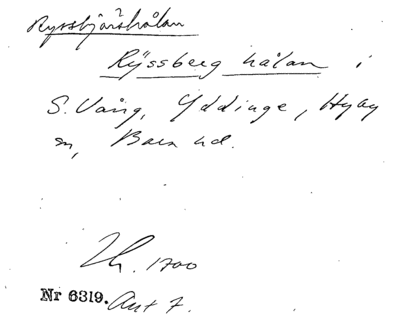 Ryssbjärshålan
Rÿssberg hålan i
S. Vång, Yddinge, Hyby
sn, Bara hd.
Lh. 1700
Nr 6319. Ant 7.